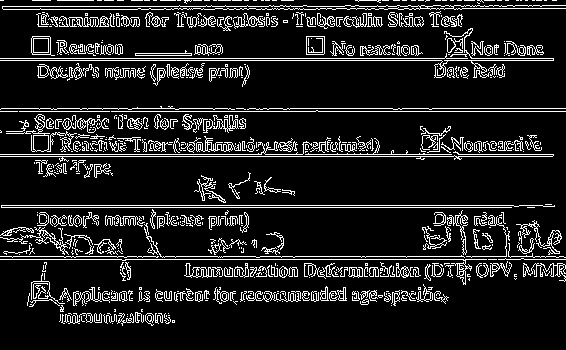 Examination for Tuberculosis - Tuberculin Skin Test
Reaction ______ mm No reaction Not Done
Doctor's name (please print) Date read
Serologic Test for Syphilis
Reactive Titer (confirmatory test performed) Nonreactive
Test Type
Doctor's name (please print) Date read
Immunization Determination (DTP, OPV, MMR
Applicant is current for recommended age-specific
immunizations.